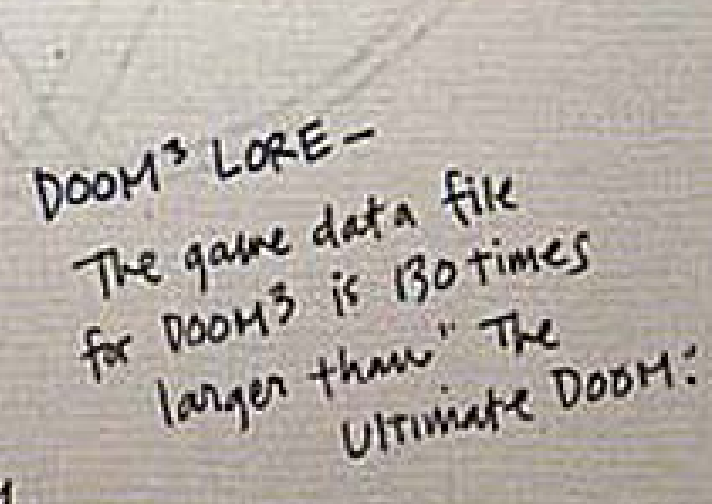 DOOM³ LORE—
The game data file
for DOOM3 is 130 times
larger than "The
Ultimate DOOM."